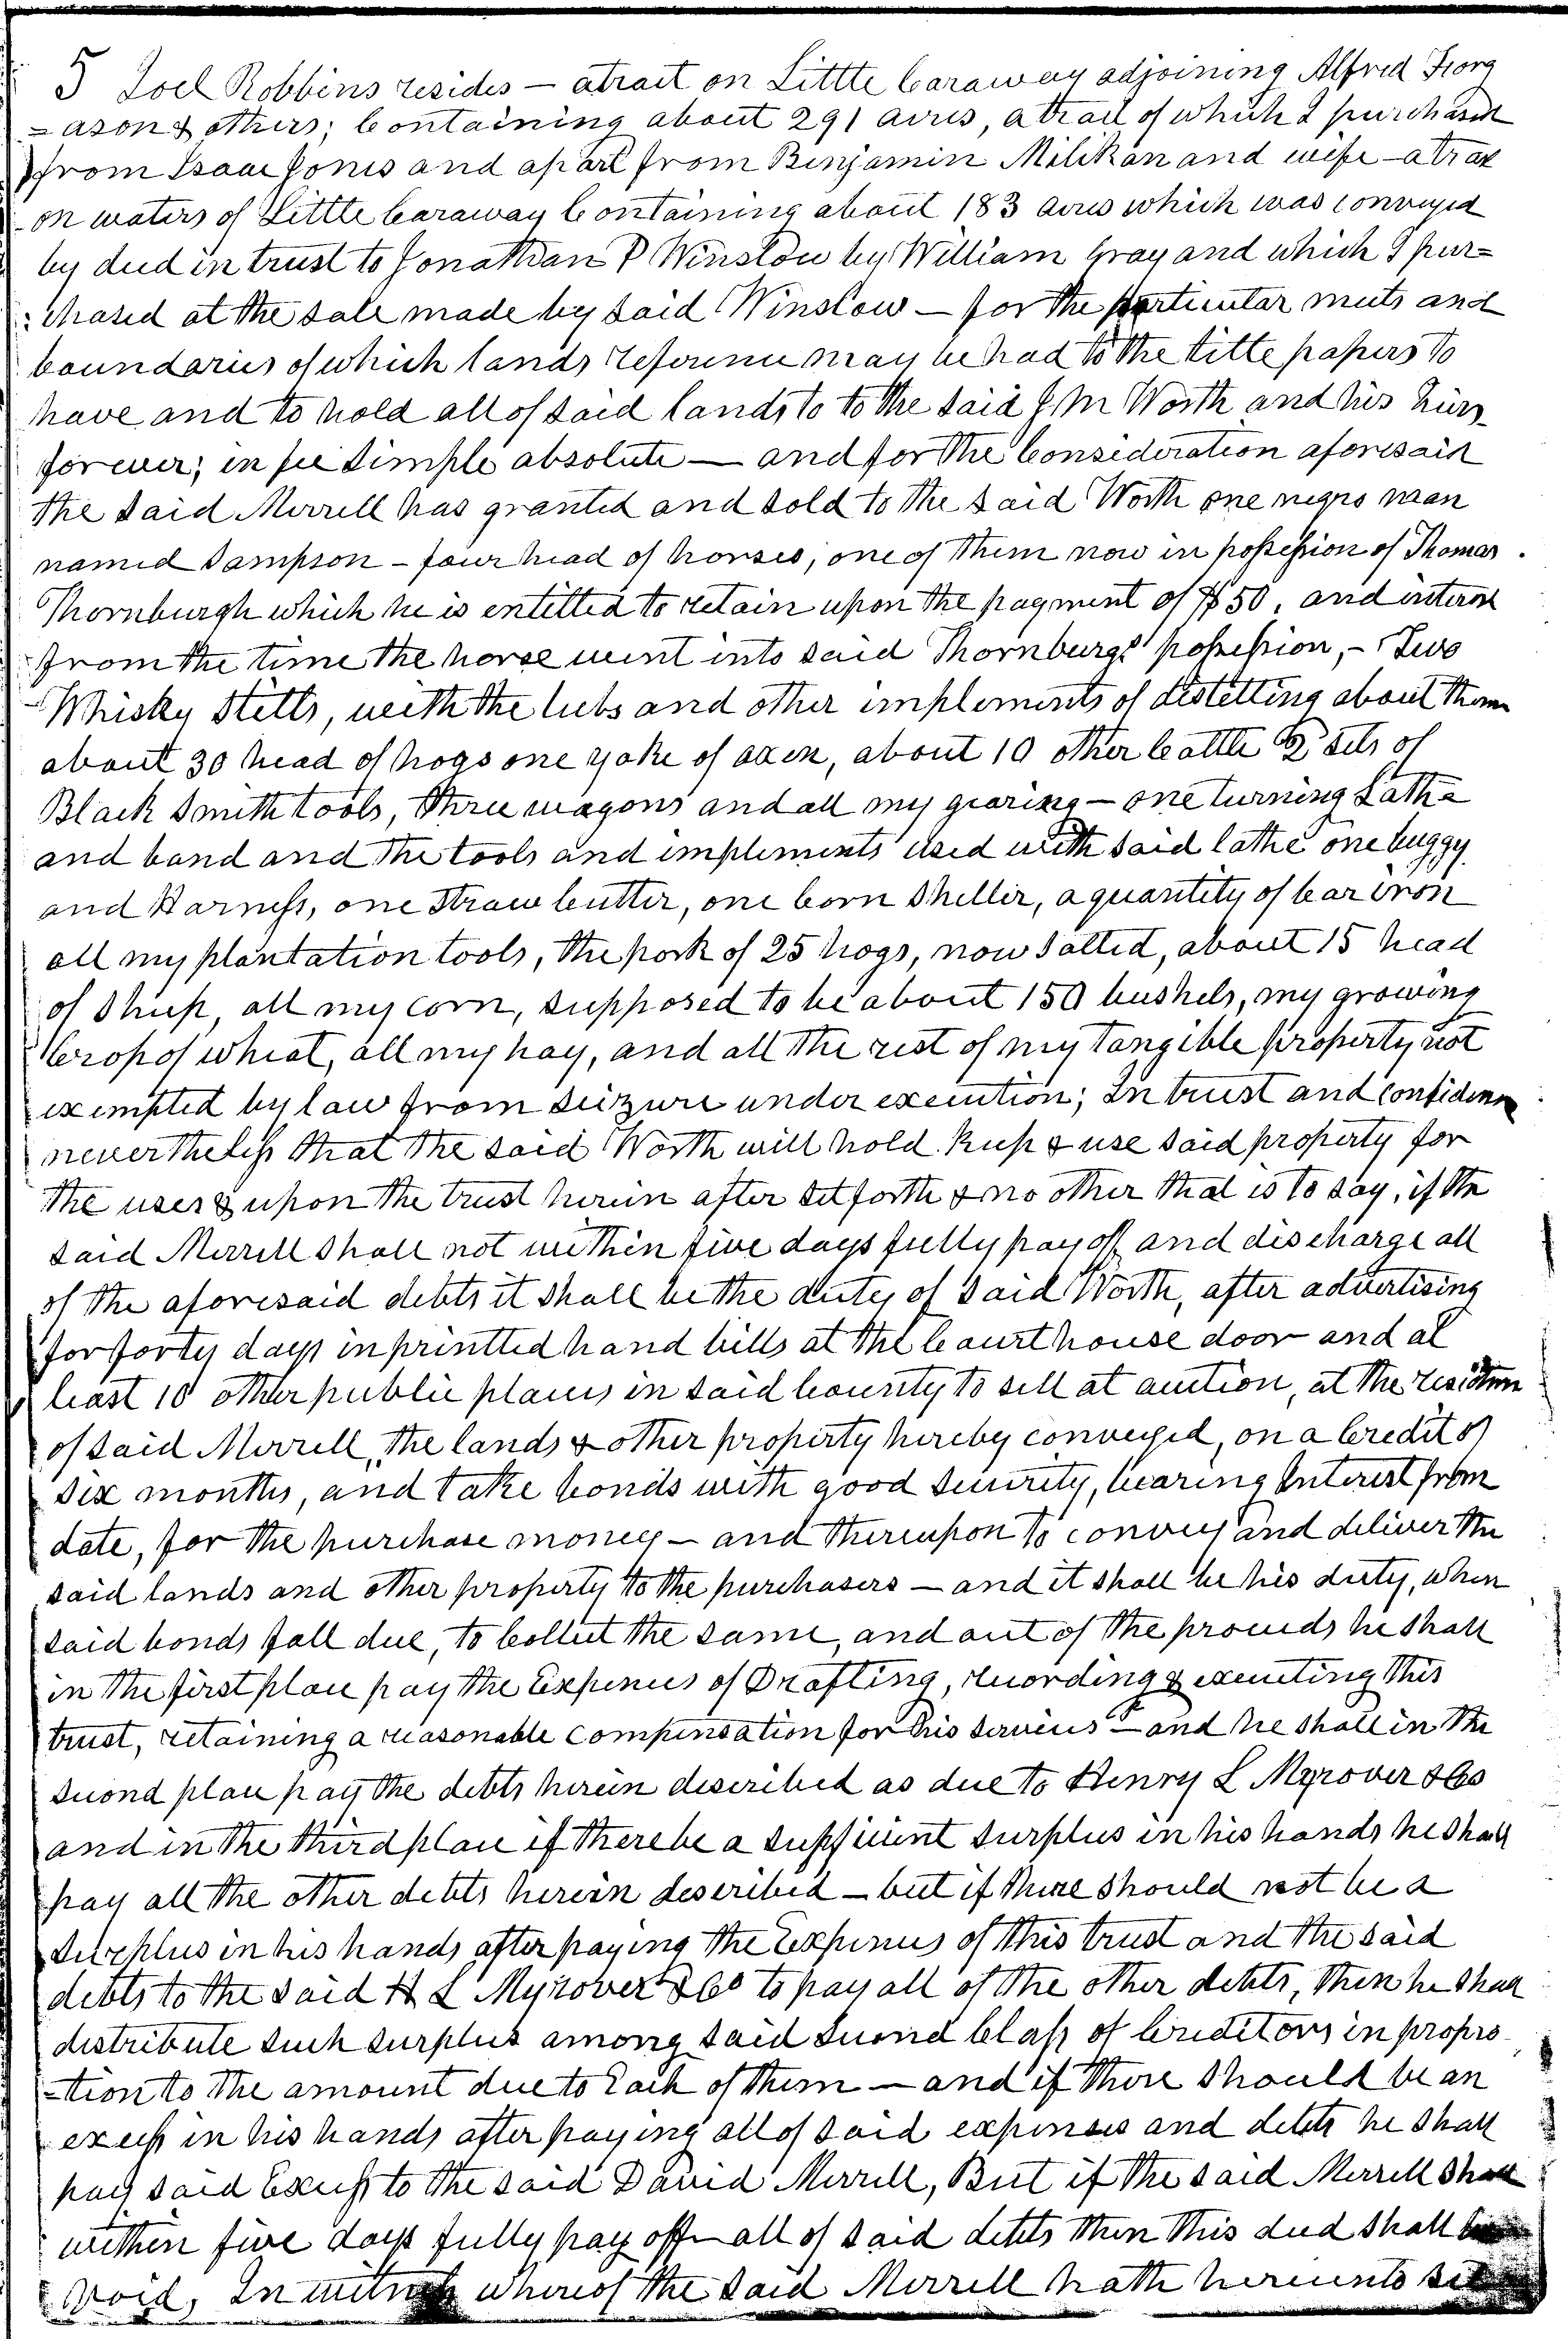 5 Joel Robbins resides — a tract on Little Caraway adjoining Alfred Forg
= ason & others; Containing about 291 acres, a tract of which I purchased
from Isaac Jones and a part from Benjamin Milikan and wife — a tract
on waters of Little Caraway Containing about 183 acres which was conveyed
by deed in trust to Jonathan P Winslow by William Gray and which I pur=
: chased at the sale made by said Winslow — for the particular meets and
boundaries of which lands reference may be had to the title papers to
have and to hold all of said lands to to the said J M Worth and his heirs
forever; in fee simple absolute — and for the Consideration aforesaid
the said Merrell has granted and sold to the said Worth one negro man
named Sampson — four head of horses, one of them now in possession of Thomas
Thornburgh which he is entitled to retain upon the payment of $50, and interest
from the time the horse went into said Thornburgs' possession, — Two
Whisky Stills, with the tubs and other implements of distilling about them
about 30 head of hogs one yoke of oxen, about 10 other Cattle 2 sets of
Black Smith tools, three wagons and all my gearing — one turning Lathe
and band and the tools and implements used with said lathe one buggy
and Harness, one Straw Cutter, one Corn Sheller, a quantity of bar iron
all my plantation tools, the pork of 25 hogs, now salted, about 15 head
of Sheep, all my corn, supposed to be about 150 bushels, my growing
Crop of wheat, all my hay, and all the rest of my tangible property not
exempted by law from seizure under execution; In trust and confidence
nevertheless that the said Worth will hold keep & use said property for
the uses & upon the trust herein after set forth & no other that is to say, if the
said Merrell shall not within five days fully pay off and discharge all
of the aforesaid debts it shall be the duty of said Worth, after advertising
for forty days in printted hand bills at the Court house door and at
least 10 other public places in said County to sell at auction, at the residence
of said Merrell, the lands & other property hereby conveyed, on a Credit of
six months, and take bonds with good security, bearing Interest from
date, for the purchase money — and thereupon to convey and deliver the
said lands and other property to the purchasers — and it shall be his duty, when
said bonds fall due, to Collect the same, and out of the proceeds he shall
in the first place pay the Expences of Drafting, recording & executing this
trust, retaining a reasonable compensation for his services — and he shall in the
second place pay the debts herein described as due to Henry L Myrover & Co
and in the third place if there be a sufficient surplus in his hands he shall
pay all the other debts herein described — but if there should not be a
surplus in his hands after paying the Expences of this trust and the said
debts to the said H L Myrover & Co to pay all of the other debts, then he shall
distribute such surplus among said second Class of Creditors in propro
=tion to the amount due to Each of them — and if there should be an
excess in his hands after paying all of said expenses and debts he shall
pay said Excess to the said David Merrell, But if the said Merrell shall
within five days fully pay off all of said debts then this deed shall be
void, In witness whereof the said Merrell hath hereunto set